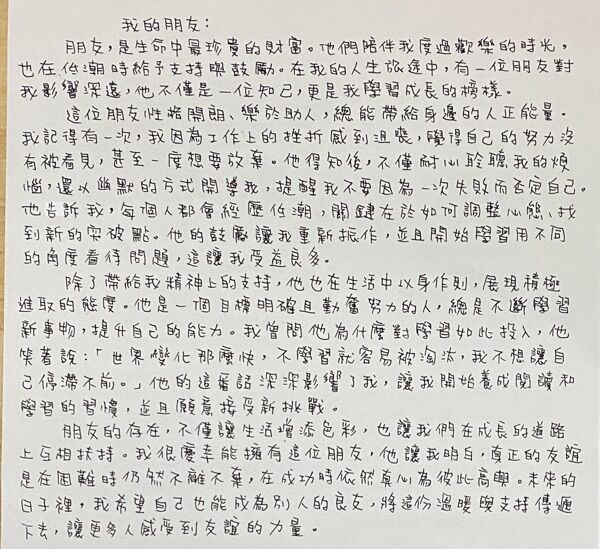 我的朋友：
朋友，是生命中最珍貴的財富。他們陪伴我度過歡樂的時光，
也在低潮時給予支持與鼓勵。在我的人生旅途中，有一位朋友對
我影響深遠，他不僅是一位知己，更是我學習成長的榜樣。
這位朋友性格開朗、樂於助人，總能帶給身邊的人正能量。
我記得有一次，我因為工作上的挫折感到沮喪，覺得自己的努力沒
有被看見，甚至一度想要放棄。他得知後，不僅耐心聆聽我的煩
惱，還以幽默的方式開導我，提醒我不要因為一次失敗而否定自己。
他告訴我，每個人都會經歷低潮，關鍵在於如何調整心態、找
到新的突破點。他的鼓勵讓我重新振作，並且開始學習用不同
的角度看待問題，這讓我受益良多。
除了帶給我精神上的支持，他也在生活中以身作則，展現積極
進取的態度。他是一個目標明確且勤奮努力的人，總是不斷學習
新事物，提升自己的能力。我曾問他為什麼對學習如此投入，他
笑著說：「世界變化那麼快，不學習就容易被淘汰，我不想讓自
己停滯不前。」他的這番話深深影響了我，讓我開始養成閱讀和
學習的習慣，並且願意接受新挑戰。
朋友的存在，不僅讓生活增添色彩，也讓我們在成長的道路
上互相扶持。我很慶幸能擁有這位朋友，他讓我明白，真正的友誼
是在困難時仍然不離不棄，在成功時依然真心為彼此高興。未來的
日子裡，我希望自己也能成為別人的良友，將這份溫暖與支持傳遞
下去，讓更多人感受到友誼的力量。